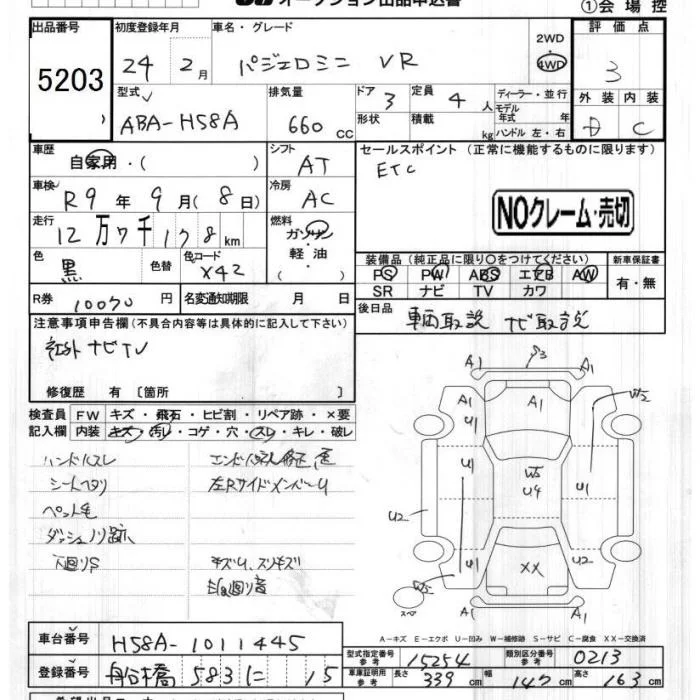 オークション出品申込書
①会場控
出品番号 5203
初度登録年月 24 2月
車名・グレード パジェロミニ VR
2WD・4WD
評価点 3
型式 ABA-H58A
排気量 660 CC
ドア 3
形状
定員 4 人
積載 kg
ディーラー・並行
モデル年式 年
ハンドル 左・右
外装 D 内装 C
車歴 自家用・( )
シフト AT
セールスポイント(正常に機能するものに限ります)
ETC
車検 R9 年 9 月(8 日)
冷房 AC
NOクレーム・売切
走行 12万7千178km
燃料 ガソリン・軽油
色 黒 色替 色コード X42
装備品(純正品に限り○をつけてください) 新車保証書
PS PW ABS エアB AW 有・無
SR ナビ TV カワ
R券 10070 円 名変通知期限 月 日
後日品 車輌取説 ナビ取説
注意事項申告欄(不具合内容等は具体的に記入して下さい)
社外ナビTV
修復歴 有〔箇所 〕
検査員記入欄 FW キズ・飛石・ヒビ割・リペア跡・×要
内装 キズ・汚レ・コゲ・穴・スレ・キレ・破レ
ハンドルスレ
シートヘタリ 左RサイドメンバーU
ペット毛
ダッシュノリ跡
下廻りS キズU、スリキズ
A1 A1
A1 A1 W5
U1 U1
U1 W5 U4 U1
U2
U2 XX U2
W5
スペア A1 A1
A-キズ E-エクボ U-凹み W-補修跡 S-サビ C-腐食 XX-交換済
車台番号 H58A-1011445
型式指定番号 参考 15254 類別区分番号 参考 0213
登録番号 船橋 583 に 15
車庫証明用 参考 長さ 339 cm 幅 147 cm 高さ 163 cm